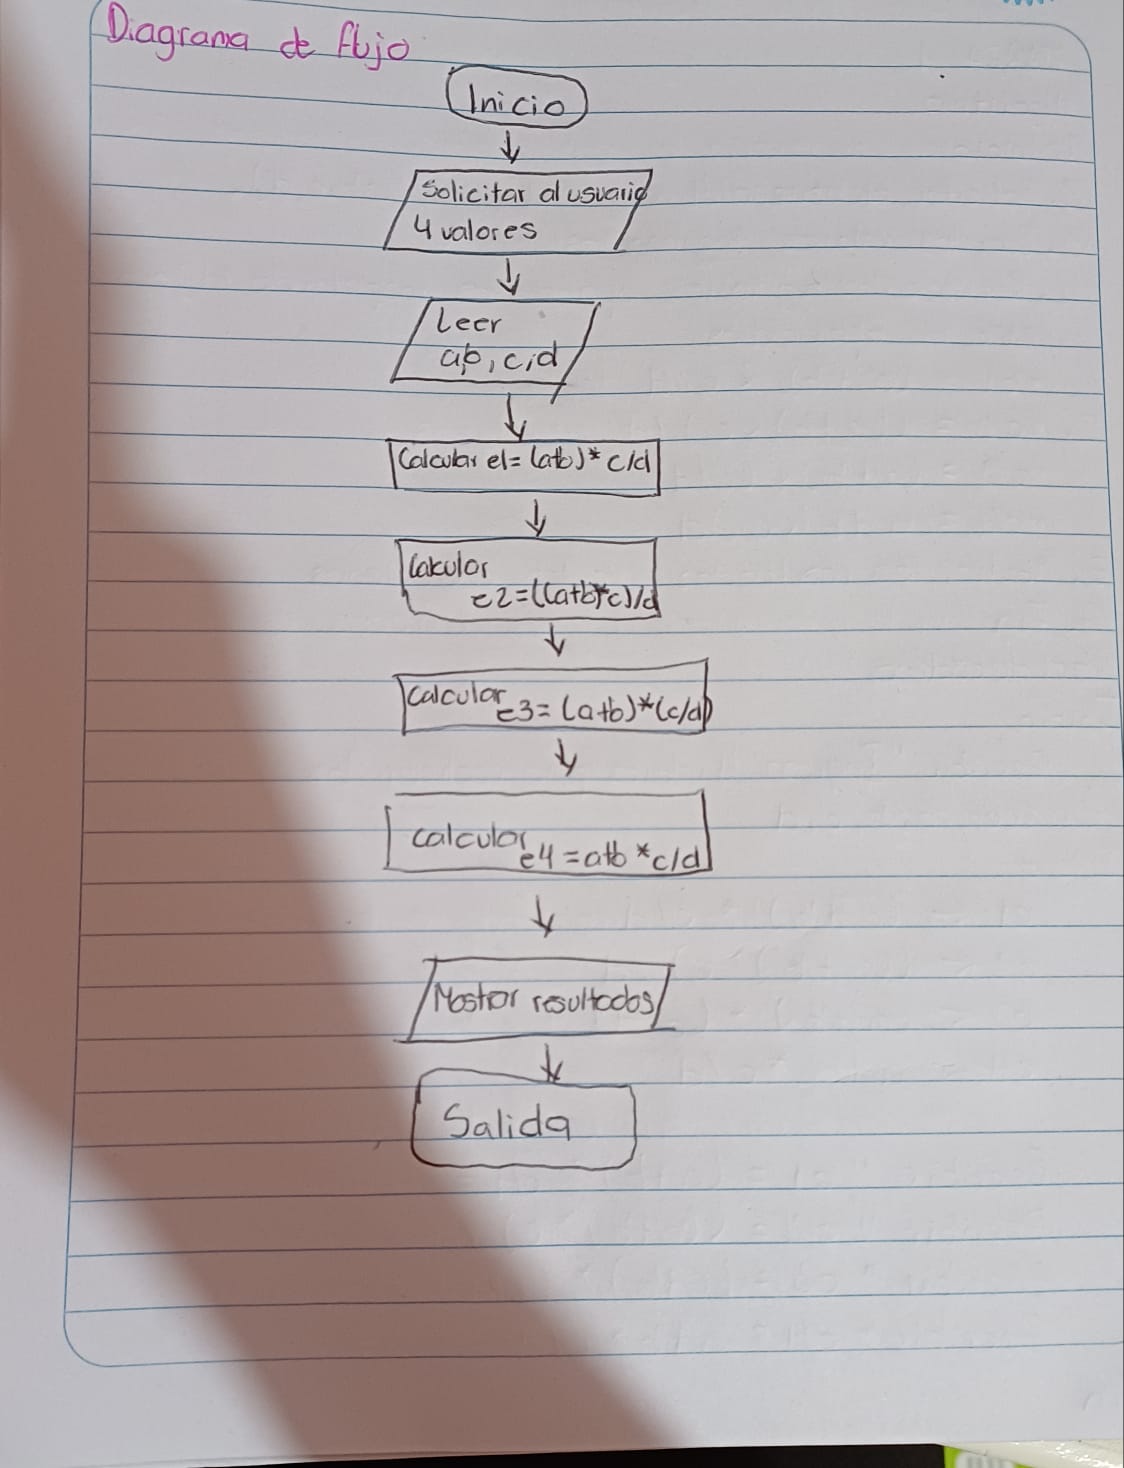 Diagrama de flujo
Inicio
Solicitar al usuario
4 valores
Leer
a,b, c,d
Calcular e1= (a+b)* c/d
Calcular
e2=((a+b)*c)/d
Calcular
e3= (a+b)*(c/d)
calcular
e4 =a+b *c/d
Mostrar resultados
Salida